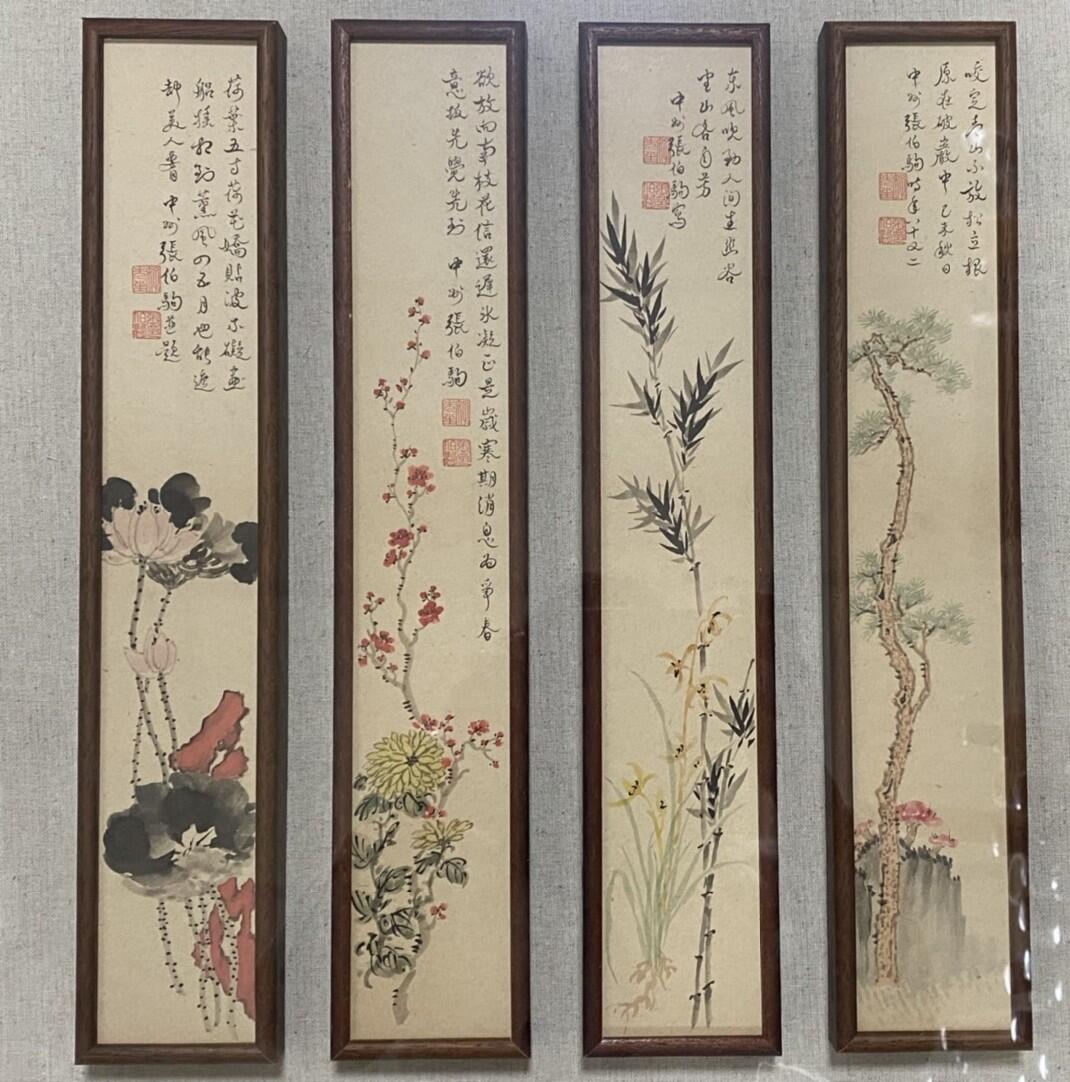 咬定青山不放松立根
原在破巖中 己未秋日
中州張伯駒時年八十又二
东風吹動人间幽谷
空山各自芳
中州張伯駒寫
欲放向南枝花信還遲冰凝正是歲寒期消息为爭春
意报先覺先知 中州張伯駒
荷葉五寸荷花嬌貼波不礙畫
船搖相到薰風四五月也能遮
却美人腰 中州張伯駒並題